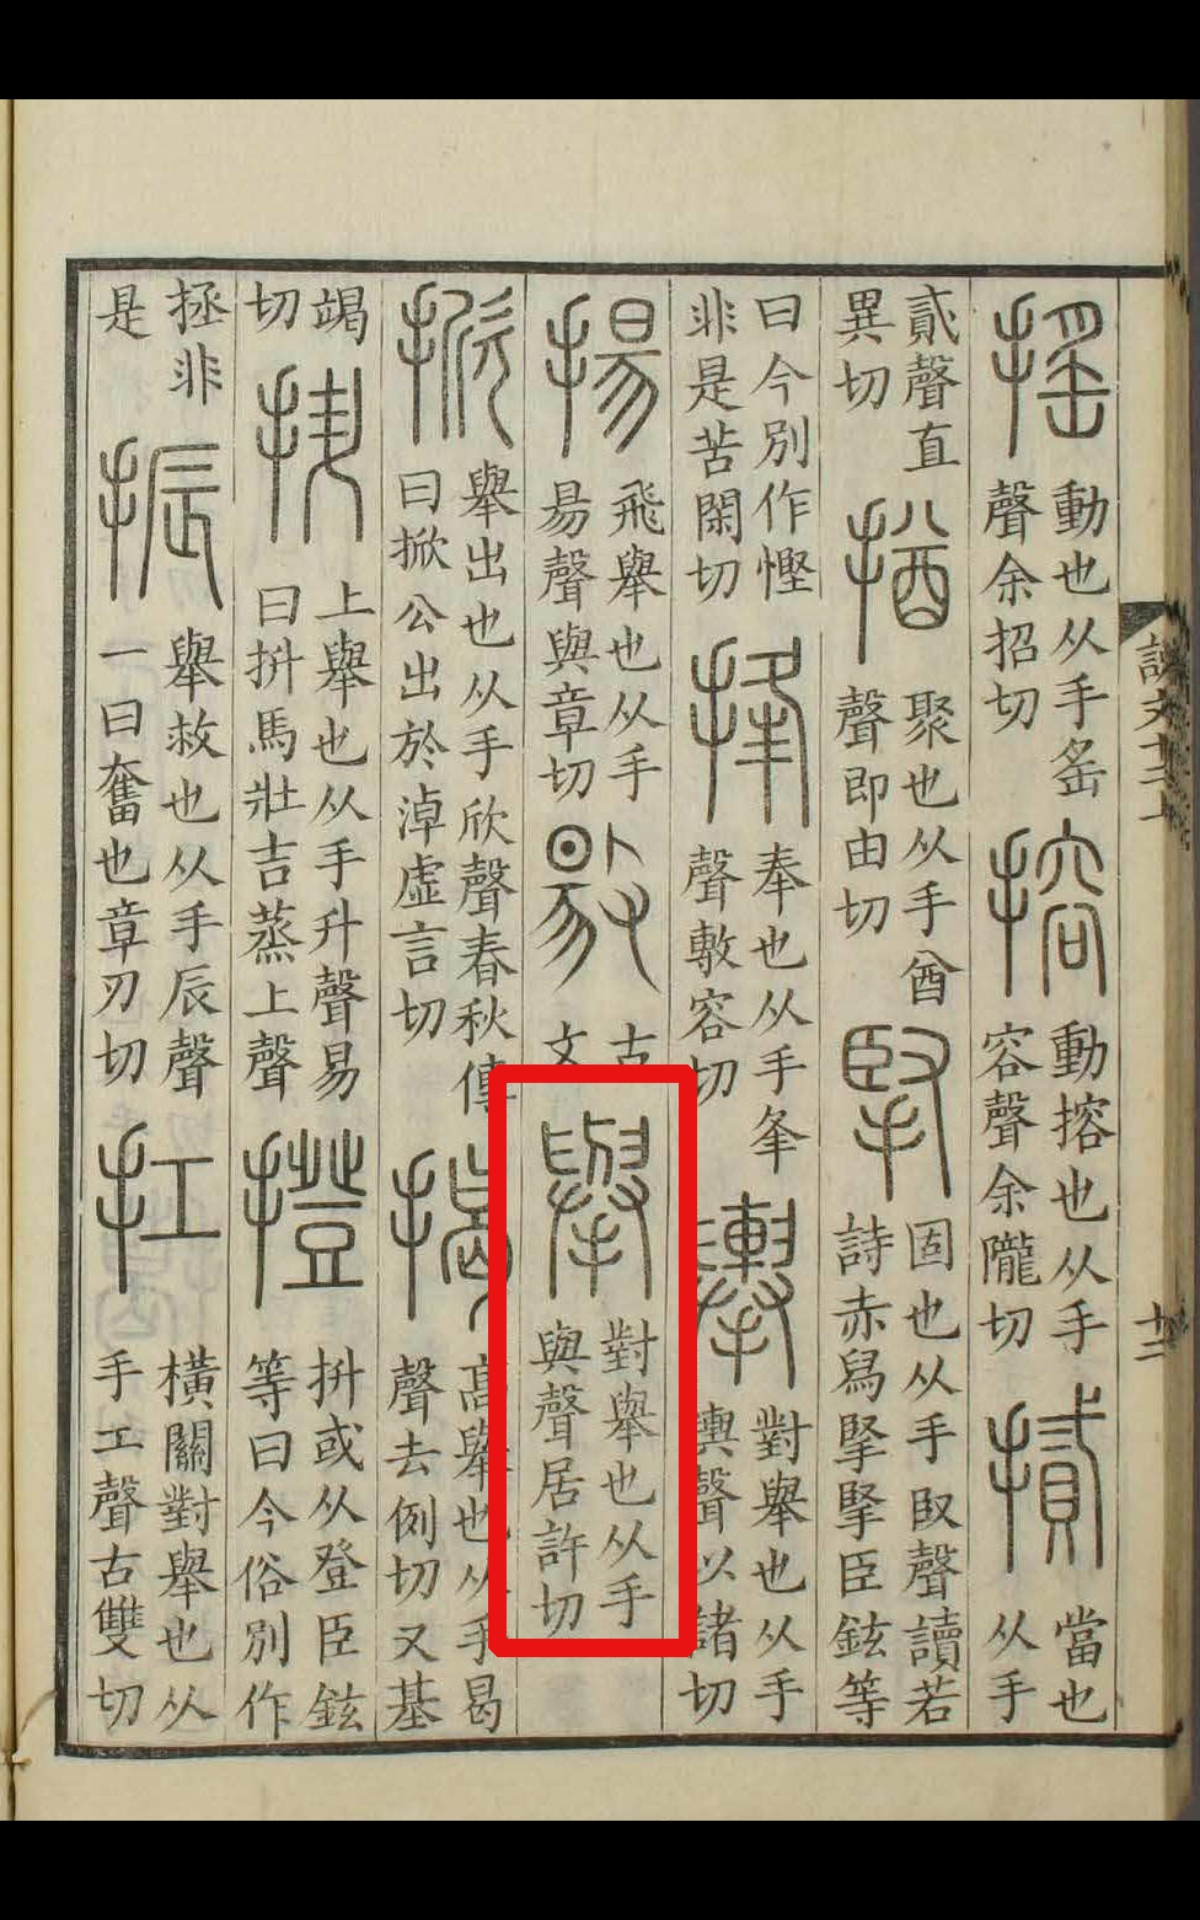 說文十二上
十二
搖
動也从手䍃
聲余招切
搈
動搈也从手
容聲余隴切
㨖
當也
从手
貳聲直
異切
揂
聚也从手酋
聲即由切
掔
固也从手臤聲讀若
詩赤舄掔掔臣鉉等
曰今別作慳
非是苦閑切
捀
奉也从手夆
聲敷容切
擧
對舉也从手
輿聲以諸切
揚
飛舉也从手
昜聲與章切
𢾙
古
文
舉
對舉也从手
與聲居許切
掀
舉出也从手欣聲春秋傳
曰掀公出於淖虛言切
揭
高舉也从手曷
聲去例切又基
竭
切
抍
上舉也从手升聲易
曰抍馬壯吉蒸上聲
撜
抍或从登臣鉉
等曰今俗別作
拯非
是
振
舉救也从手辰聲
一曰奮也章刃切
扛
橫關對舉也从
手工聲古雙切